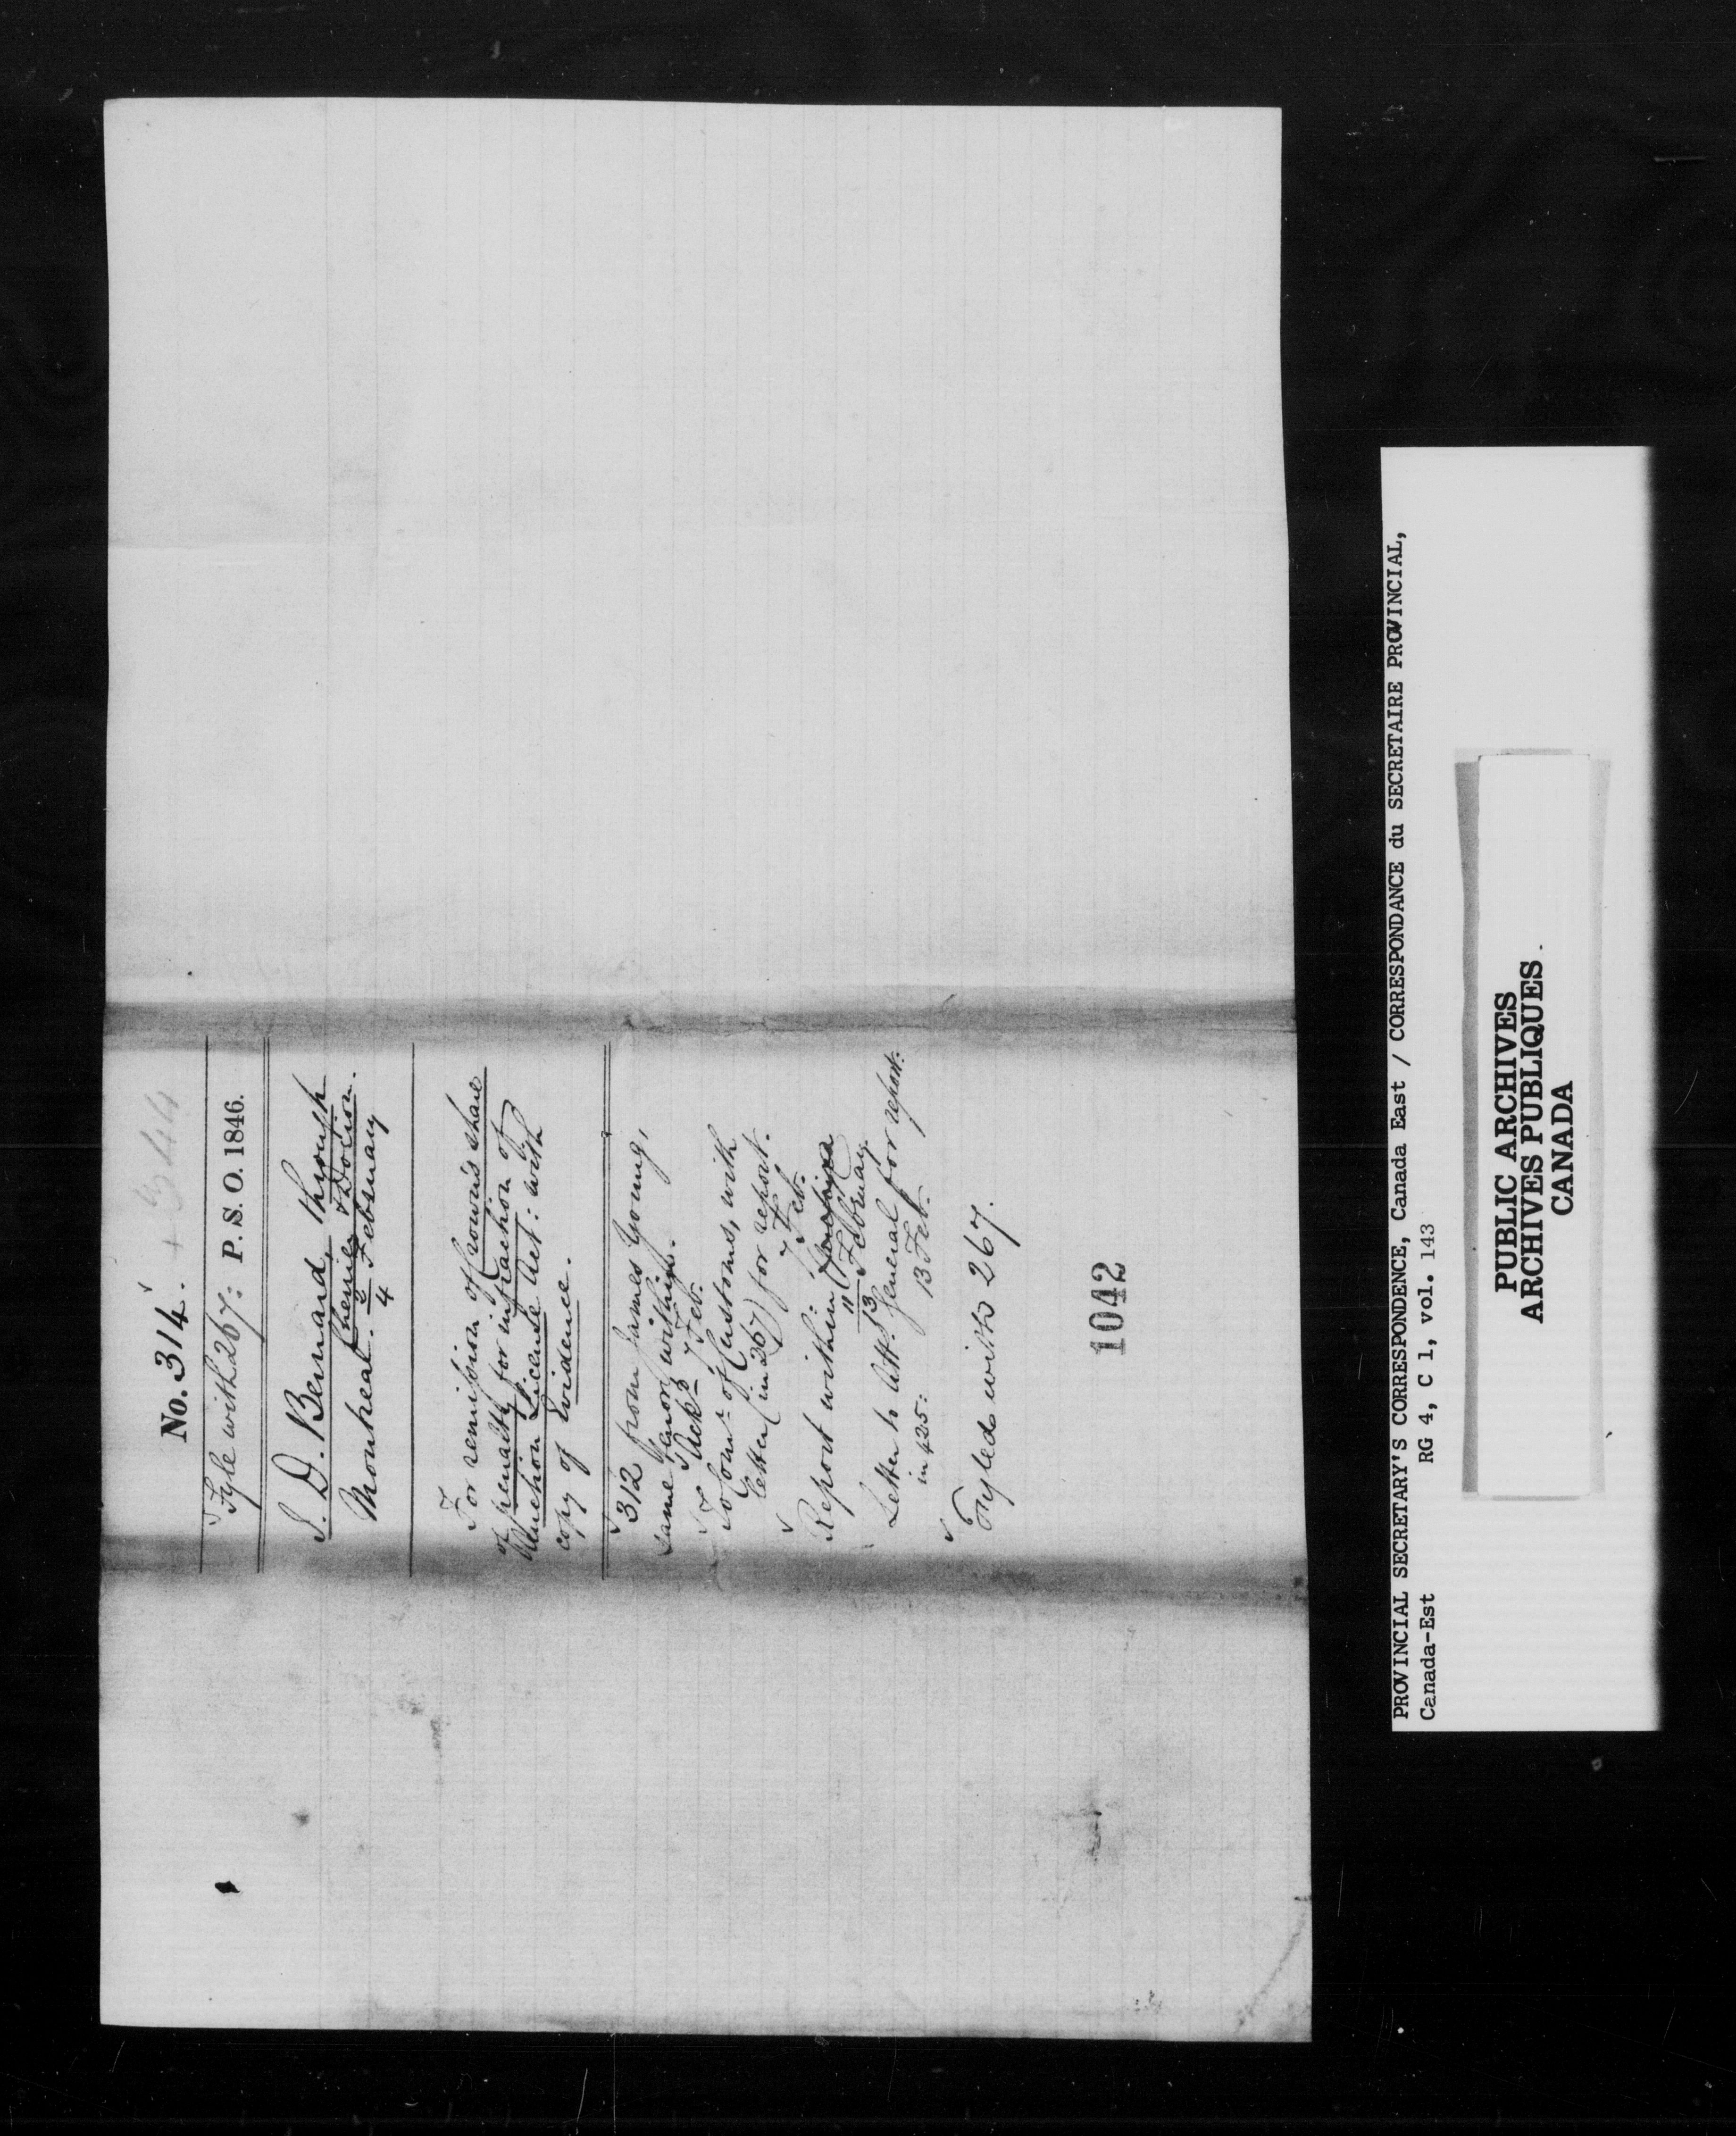 No. 314.
Fyle with 267: P. S. O. 1846.
S. D. Bernard, through
Cherrier & Dorion.
Montreal. 2 February
4
For remission of Crown's share
of penalty for infraction of
Auction License Act: with
copy of Evidence.
312 from James Young,
same
7 Feb.
To Comr. of Customs, with
letter (in 267) for report.
7 Feb.
Report within
11 February
13
Letter to Att. General for report.
in 425: 13 Feb.
Fyled with 267.
1042
PROVINCIAL SECRETARY'S CORRESPONDENCE, Canada East / CORRESPONDANCE du SECRETAIRE PROVINCIAL,
Canada-Est RG 4, C 1, vol. 143
PUBLIC ARCHIVES
ARCHIVES PUBLIQUES
CANADA